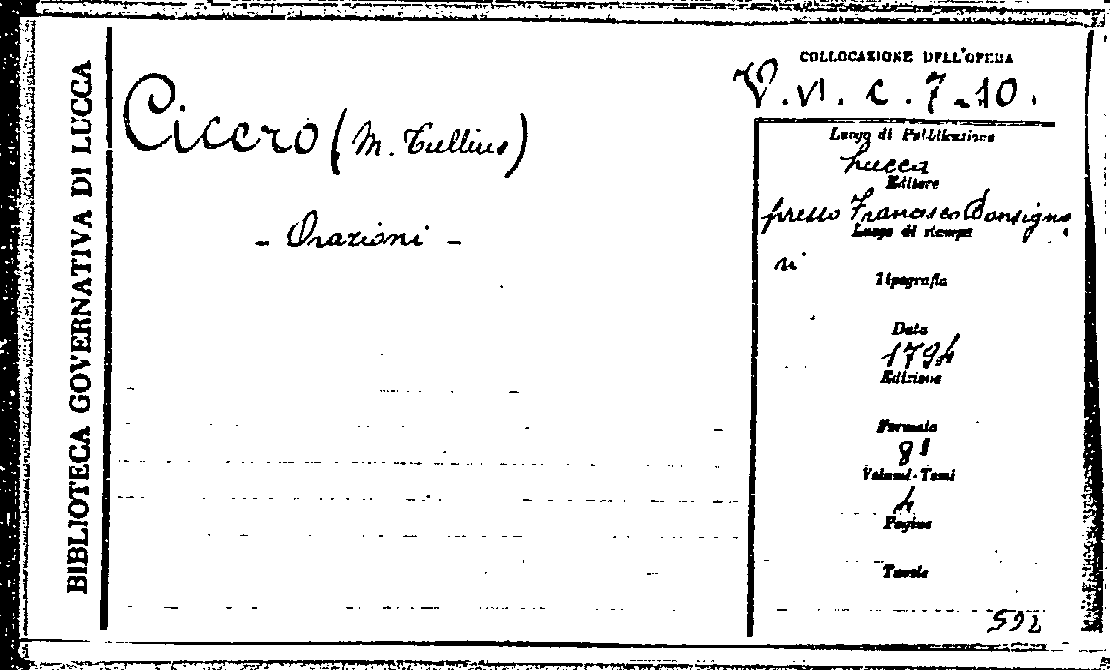 BIBLIOTECA GOVERNATIVA DI LUCCA
Cicero (M. Tullius)
- Orazioni -
COLLOCAZIONE DELL'OPERA
V. VI. c. 7-10.
Luogo di Pubblicazione
Lucca
Editore
presso Francesco Bonsigno
Luogo di stampa
ri
Tipografia
Data
1794
Edizione
Formato
8°
Volumi-Tomi
4
Pagine
Tavole
592